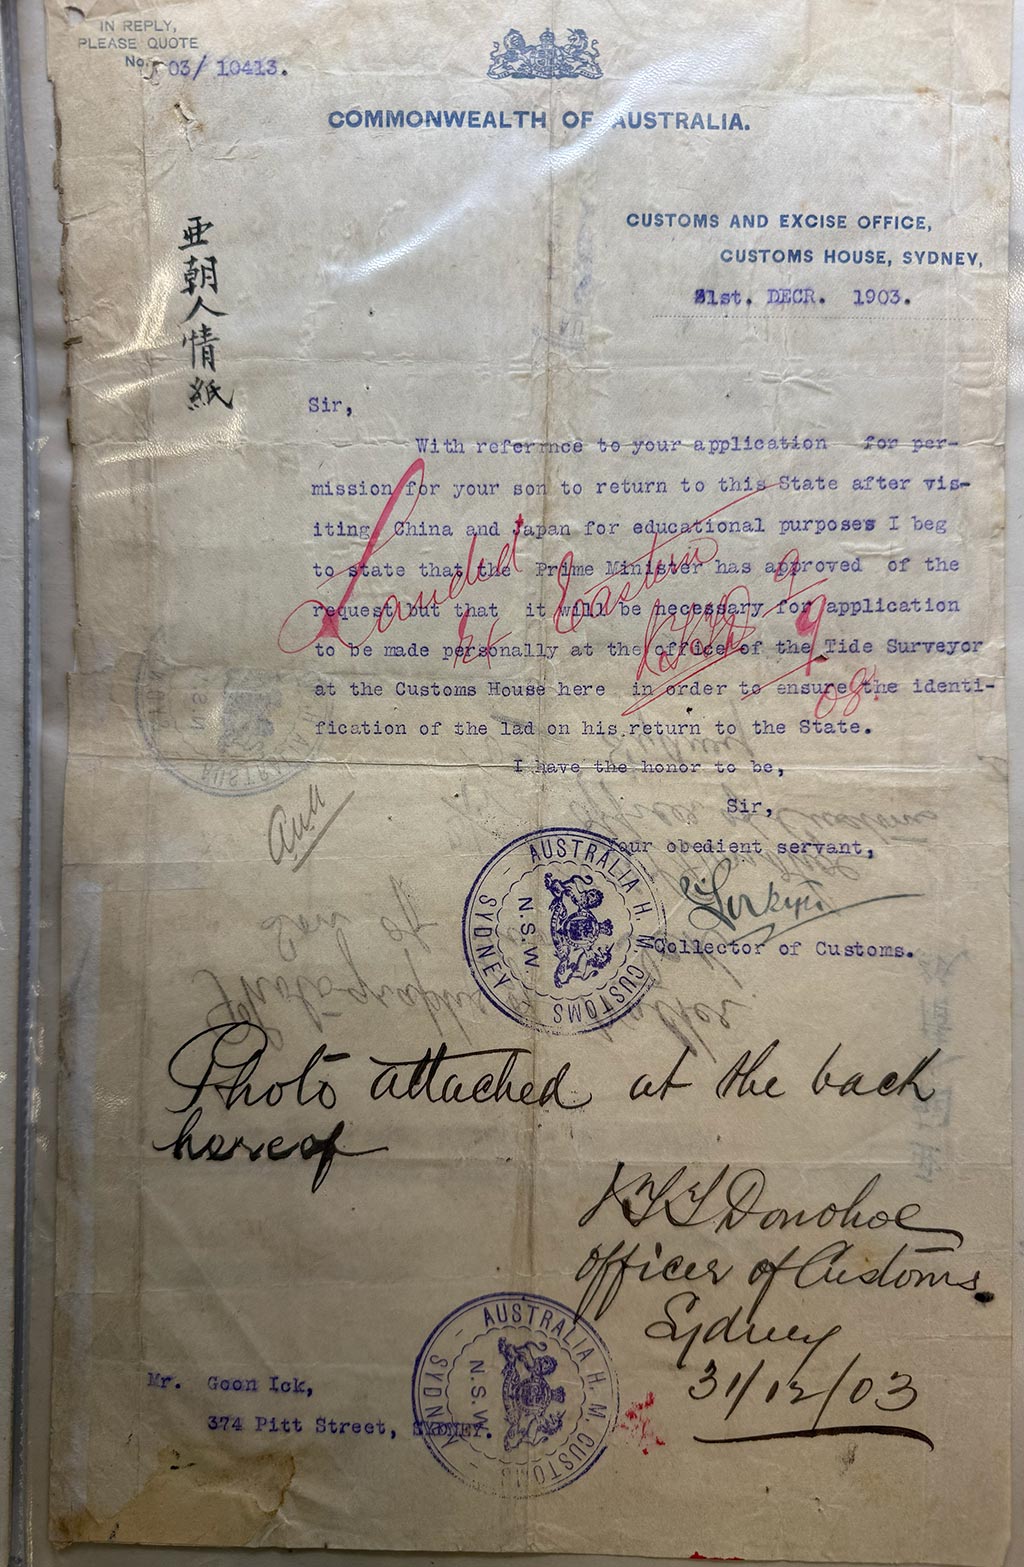 IN REPLY,
PLEASE QUOTE
No. 03/10413.
COMMONWEALTH OF AUSTRALIA.
CUSTOMS AND EXCISE OFFICE,
CUSTOMS HOUSE, SYDNEY,
31st. DECR. 1903.
亜朝人情紙
Sir,
With reference to your application for per-
mission for your son to return to this State after vis-
iting China and Japan for educational purposes I beg
to state that the Prime Minister has approved of the
request but that it will be necessary for application
to be made personally at the office of the Tide Surveyor
at the Customs House here in order to ensure the identi-
fication of the lad on his return to the State.
Landed
Eastern
I have the honor to be,
Sir,
Your obedient servant,
Collector of Customs.
AUSTRALIA H. M. CUSTOMS SYDNEY
N.S.W.
Photo attached at the back
hereof
Donohoe
Officer of Customs
Sydney
31/12/03
AUSTRALIA H. M. CUSTOMS SYDNEY
N.S.W.
Mr. Goon Ick,
374 Pitt Street, SYDNEY.